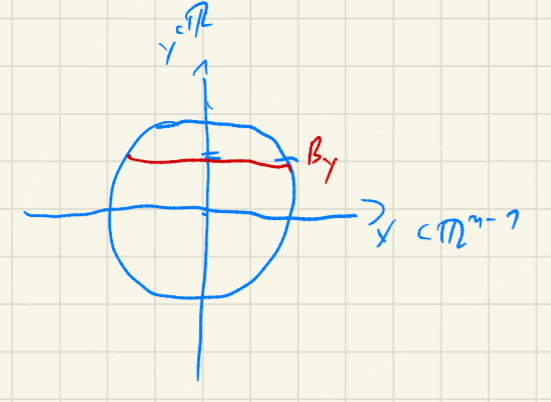 y ∈ ℝ
B_y
x ∈ ℝ^{n-1}